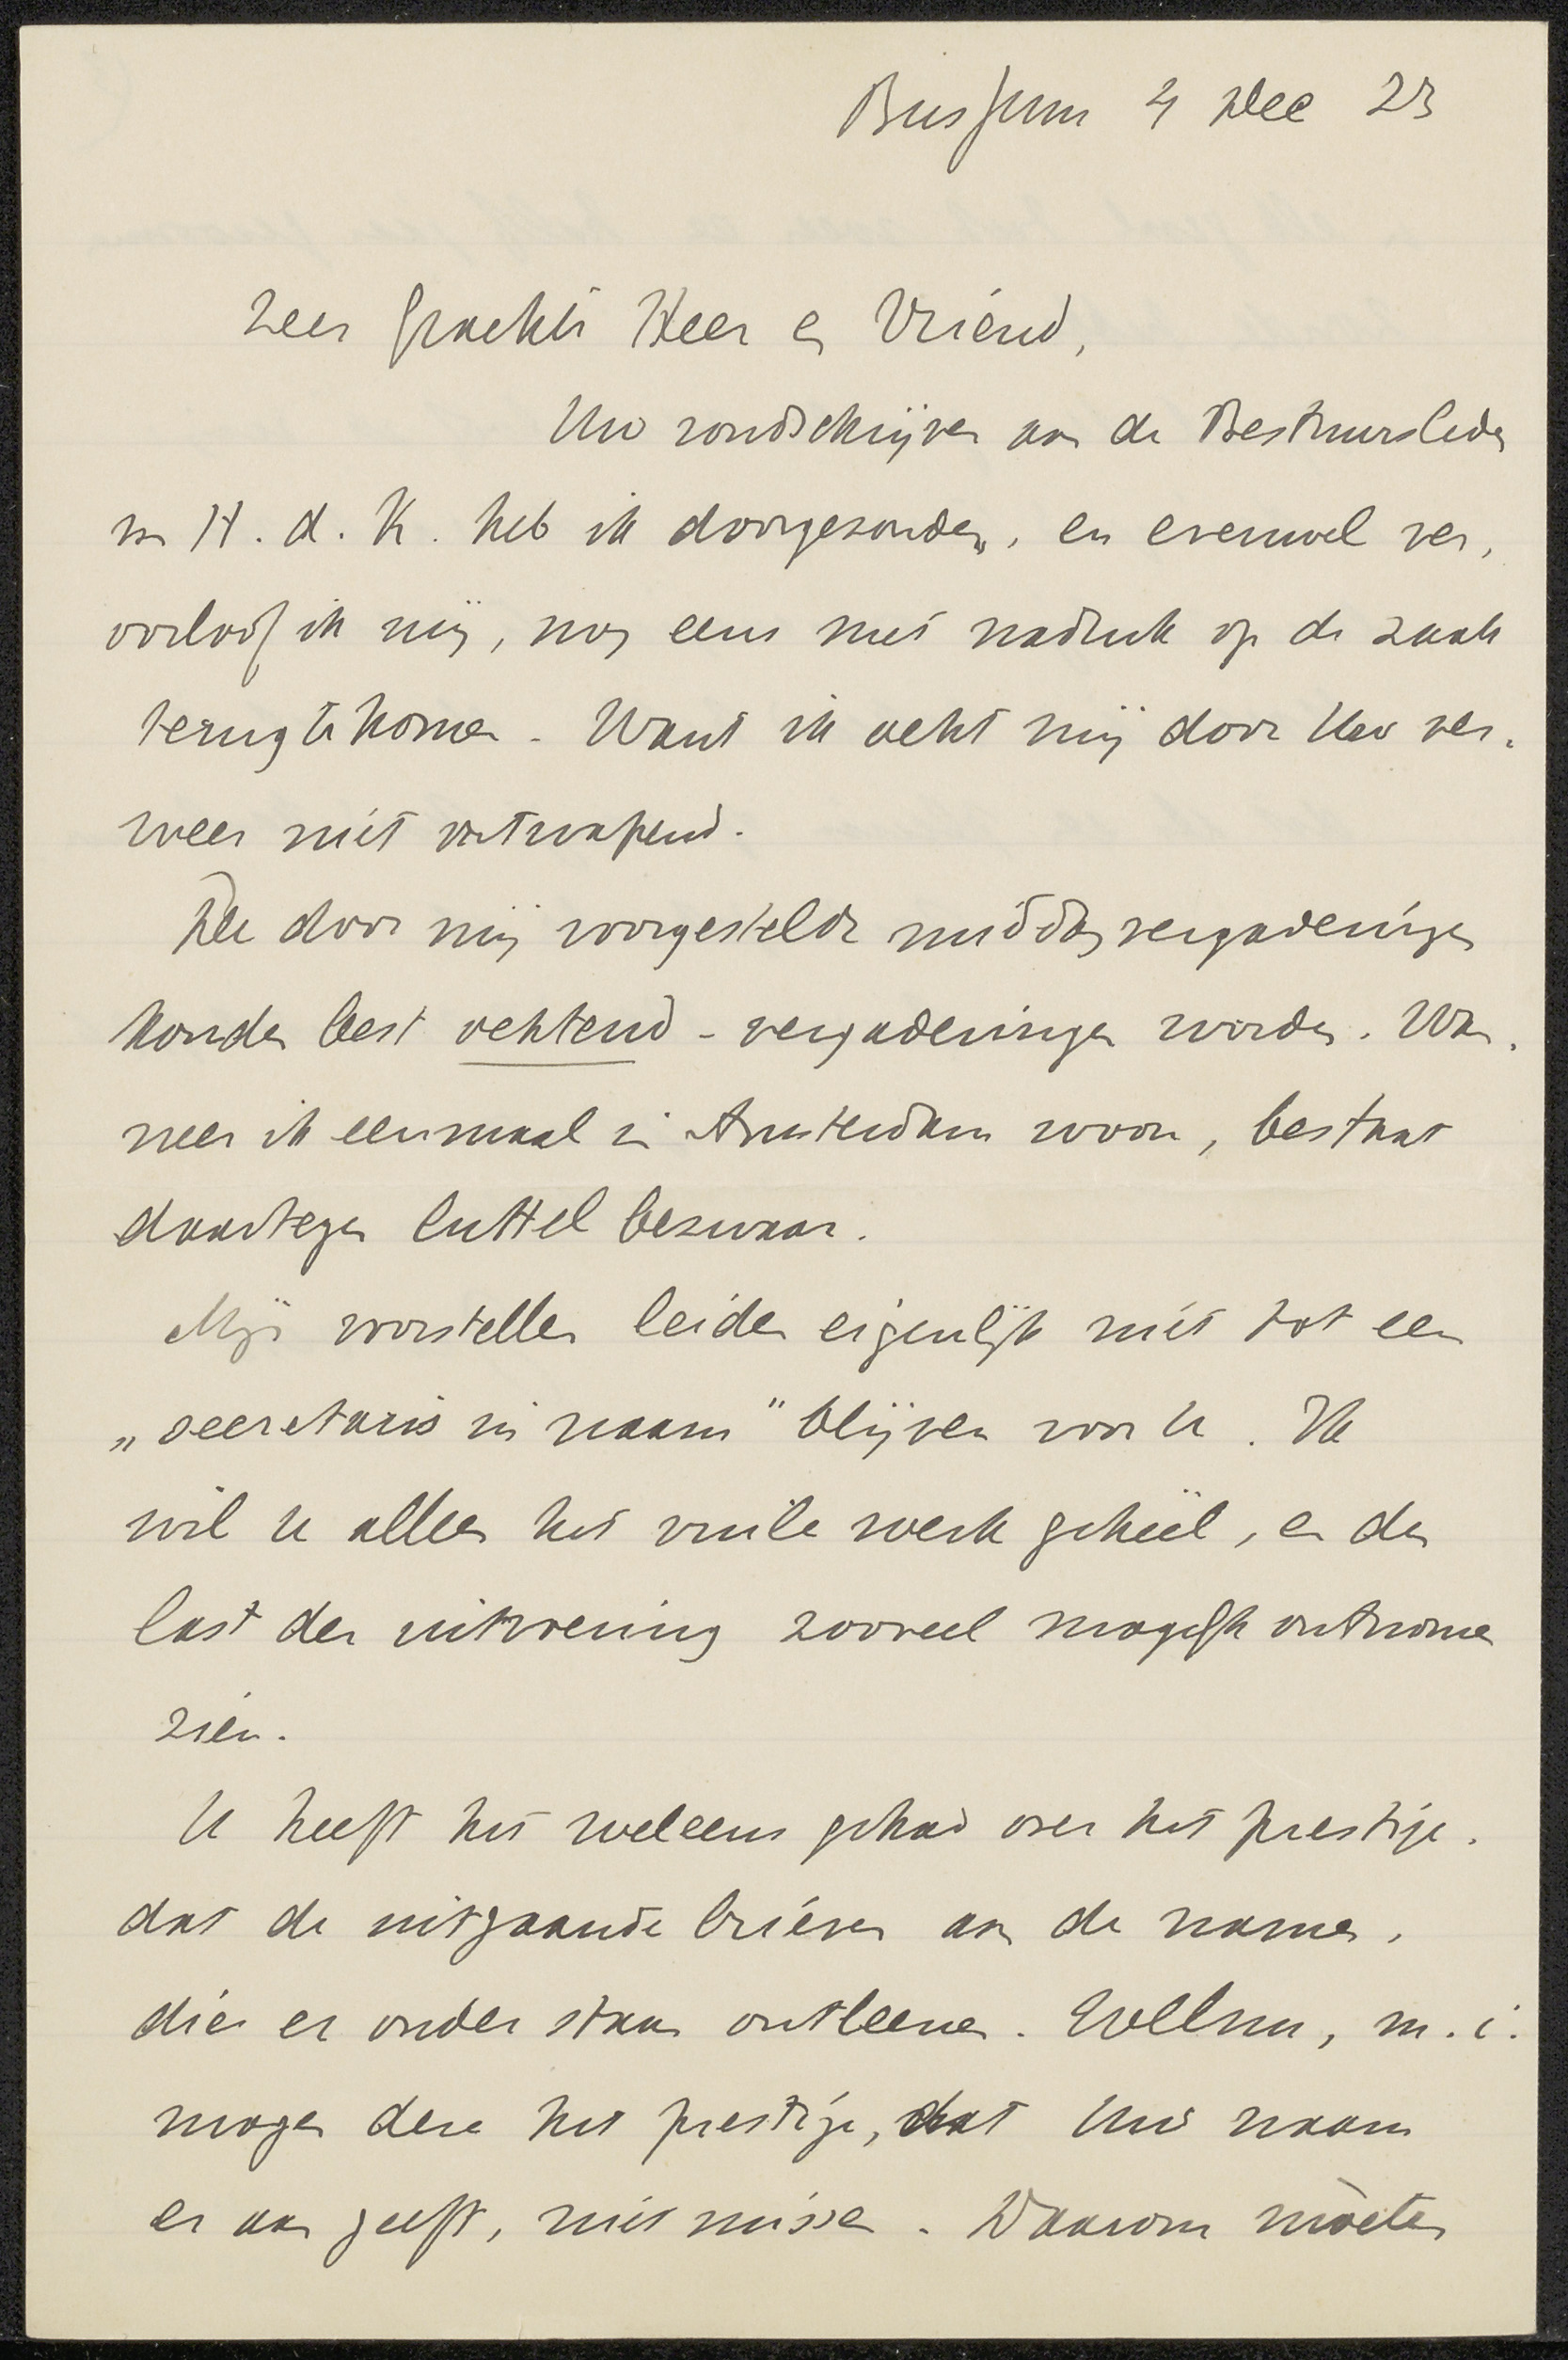 Bussum 4 Dec 23
Zeer geachte Heer en Vriend,
Uw rondschrijven aan de Bestuursleden
van H. d. K. heb ik doorgezonden, en evenwel ver-
oorloof ik mij, nog eens met nadruk op de zaak
terug te komen. Want ik acht mij door Uw ver-
weer niet ontwapend.
De door mij voorgestelde middagvergaderingen
konden best ochtend-vergaderingen worden. Wan-
neer ik eenmaal in Amsterdam woon, bestaat
daartegen luttel bezwaar.
Mijn voorstellen leiden eigenlijk niet tot een
„secretaris in naam" blijven voor U. Ik
wil U alleen het vuile werk geheel, en den
last der uitvoering zooveel mogelijk ontnomen
zien.
U heeft het weleens gehad over het prestige.
dat de uitgaande brieven aan de namen,
die er onder staan ontleenen. Welnu, m.i.
mogen deze het prestige, dat Uw naam
er aan geeft, niet missen. Daarom mòeten